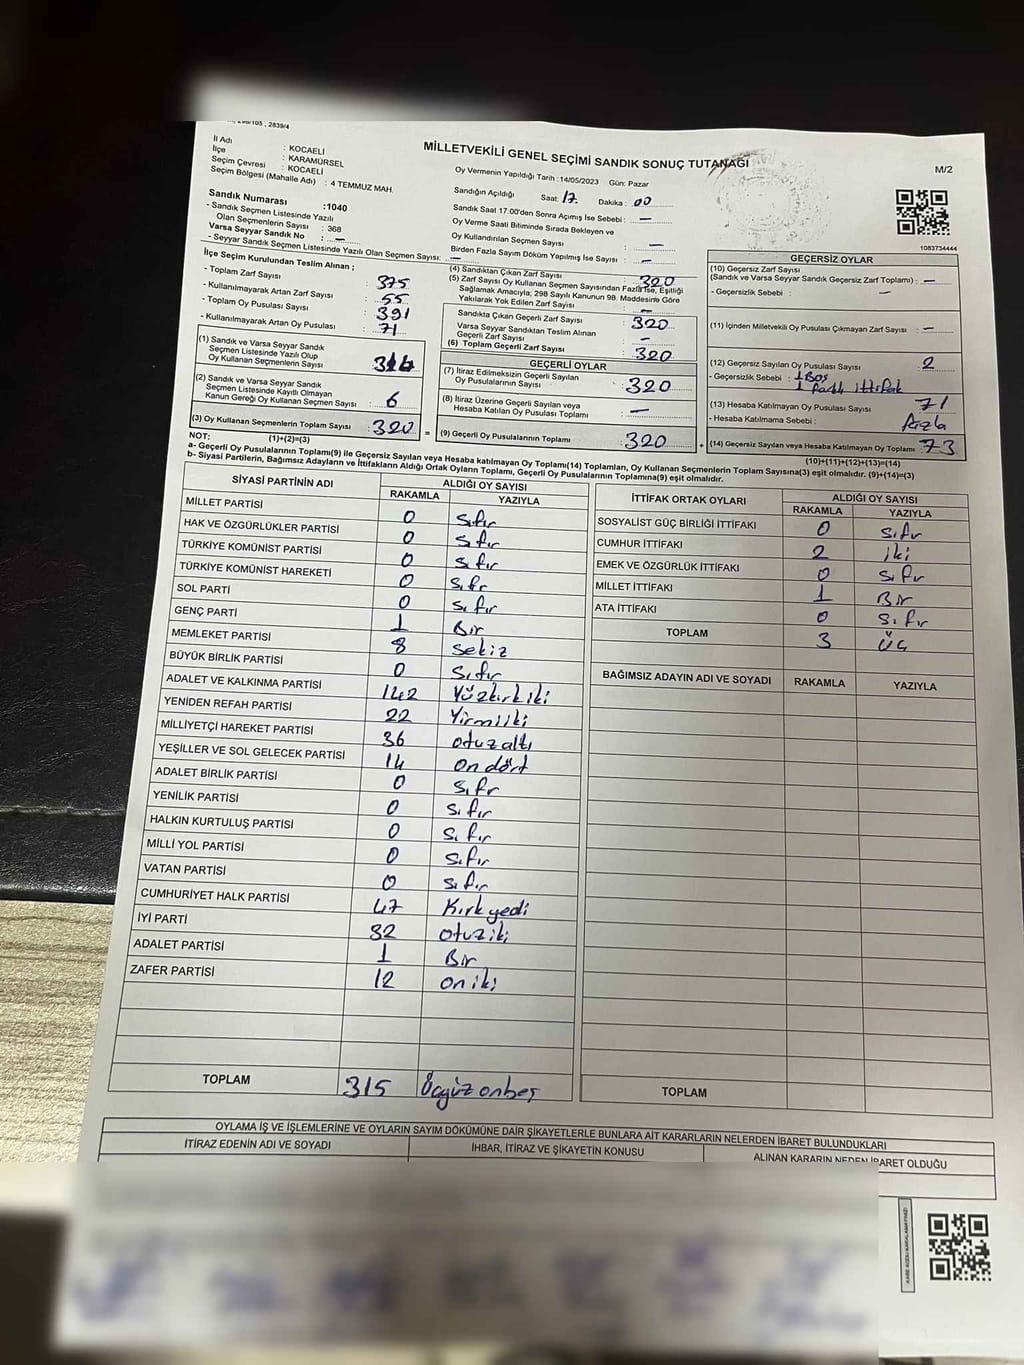 MİLLETVEKİLİ GENEL SEÇİMİ SANDIK SONUÇ TUTANAĞI
M/2
İl Adı : KOCAELİ
İlçe : KARAMÜRSEL
Seçim Çevresi : KOCAELİ
Seçim Bölgesi (Mahalle Adı) : 4 TEMMUZ MAH.
Sandık Numarası :1040
- Sandık Seçmen Listesinde Yazılı
Olan Seçmenlerin Sayısı : 368
Varsa Seyyar Sandık No : —
- Seyyar Sandık Seçmen Listesinde Yazılı Olan Seçmen Sayısı: —
Oy Vermenin Yapıldığı Tarih :14/05/2023 Gün: Pazar
Sandığın Açıldığı Saat: 17 Dakika : 00
Sandık Saat 17:00'den Sonra Açımış İse Sebebi : —
Oy Verme Saati Bitiminde Sırada Bekleyen ve
Oy Kullandırılan Seçmen Sayısı : —
Birden Fazla Sayım Döküm Yapılmış İse Sayısı : —
1083734444
İlçe Seçim Kurulundan Teslim Alınan ;
- Toplam Zarf Sayısı : 375
- Kullanılmayarak Artan Zarf Sayısı : 55
- Toplam Oy Pusulası Sayısı : 391
- Kullanılmayarak Artan Oy Pusulası : 71
(1) Sandık ve Varsa Seyyar Sandık
Seçmen Listesinde Yazılı Olup
Oy Kullanan Seçmenlerin Sayısı : 314
(2) Sandık ve Varsa Seyyar Sandık
Seçmen Listesinde Kayıtlı Olmayan
Kanun Gereği Oy Kullanan Seçmen Sayısı : 6
(3) Oy Kullanan Seçmenlerin Toplam Sayısı : 320
(1)+(2)=(3)
(4) Sandıktan Çıkan Zarf Sayısı : 320
(5) Zarf Sayısı Oy Kullanan Seçmen Sayısından Fazla İse, Eşitliği
Sağlamak Amacıyla; 298 Sayılı Kanunun 98. Maddesine Göre
Yakılarak Yok Edilen Zarf Sayısı : —
Sandıkta Çıkan Geçerli Zarf Sayısı : 320
Varsa Seyyar Sandıktan Teslim Alınan
Geçerli Zarf Sayısı : —
(6) Toplam Geçerli Zarf Sayısı : 320
GEÇERLİ OYLAR
(7) İtiraz Edilmeksizin Geçerli Sayılan
Oy Pusulalarının Sayısı : 320
(8) İtiraz Üzerine Geçerli Sayılan veya
Hesaba Katılan Oy Pusulası Toplamı : —
= (9) Geçerli Oy Pusulalarının Toplamı : 320
GEÇERSİZ OYLAR
(10) Geçersiz Zarf Sayısı
(Sandık ve Varsa Seyyar Sandık Geçersiz Zarf Toplamı) : —
- Geçersizlik Sebebi : —
(11) İçinden Milletvekili Oy Pusulası Çıkmayan Zarf Sayısı : —
(12) Geçersiz Sayılan Oy Pusulası Sayısı : 2
- Geçersizlik Sebebi : 1 Boş
1 Farklı ittifak
(13) Hesaba Katılmayan Oy Pusulası Sayısı : 71
- Hesaba Katılmama Sebebi : Fazla
+ (14) Geçersiz Sayılan veya Hesaba Katılmayan Oy Toplamı : 73
(10)+(11)+(12)+(13)=(14)
NOT:
a- Geçerli Oy Pusulalarının Toplamı(9) ile Geçersiz Sayılan veya Hesaba katılmayan Oy Toplamı(14) Toplamları, Oy Kullanan Seçmenlerin Toplam Sayısına(3) eşit olmalıdır. (9)+(14)=(3)
b- Siyasi Partilerin, Bağımsız Adayların ve İttifakların Aldığı Ortak Oyların Toplamı, Geçerli Oy Pusulalarının Toplamına(9) eşit olmalıdır.
SİYASİ PARTİNİN ADI ALDIĞI OY SAYISI
RAKAMLA YAZIYLA
MİLLET PARTİSİ 0 sıfır
HAK VE ÖZGÜRLÜKLER PARTİSİ 0 sıfır
TÜRKİYE KOMÜNİST PARTİSİ 0 sıfır
TÜRKİYE KOMÜNİST HAREKETİ 0 sıfr
SOL PARTİ 0 sıfır
GENÇ PARTİ 1 Bir
MEMLEKET PARTİSİ 8 sekiz
BÜYÜK BİRLİK PARTİSİ 0 sıfır
ADALET VE KALKINMA PARTİSİ 142 Yüzkırkiki
YENİDEN REFAH PARTİSİ 22 Yirmiiki
MİLLİYETÇİ HAREKET PARTİSİ 36 otuzaltı
YEŞİLLER VE SOL GELECEK PARTİSİ 14 on dört
ADALET BİRLİK PARTİSİ 0 sıfr
YENİLİK PARTİSİ 0 sıfır
HALKIN KURTULUŞ PARTİSİ 0 sıfır
MİLLİ YOL PARTİSİ 0 sıfır
VATAN PARTİSİ 0 sıfır
CUMHURİYET HALK PARTİSİ 47 Kırkyedi
İYİ PARTİ 32 otuziki
ADALET PARTİSİ 1 Bir
ZAFER PARTİSİ 12 oniki
TOPLAM 315 Üçyüzonbeş
İTTİFAK ORTAK OYLARI ALDIĞI OY SAYISI
RAKAMLA YAZIYLA
SOSYALİST GÜÇ BİRLİĞİ İTTİFAKI 0 sıfır
CUMHUR İTTİFAKI 2 iki
EMEK VE ÖZGÜRLÜK İTTİFAKI 0 sıfır
MİLLET İTTİFAKI 1 Bir
ATA İTTİFAKI 0 sıfır
TOPLAM 3 Üç
BAĞIMSIZ ADAYIN ADI VE SOYADI RAKAMLA YAZIYLA
TOPLAM
OYLAMA İŞ VE İŞLEMLERİNE VE OYLARIN SAYIM DÖKÜMÜNE DAİR ŞİKAYETLERLE BUNLARA AİT KARARLARIN NELERDEN İBARET BULUNDUKLARI
İTİRAZ EDENİN ADI VE SOYADI İHBAR, İTİRAZ VE ŞİKAYETİN KONUSU ALINAN KARARIN NEDEN İBARET OLDUĞU